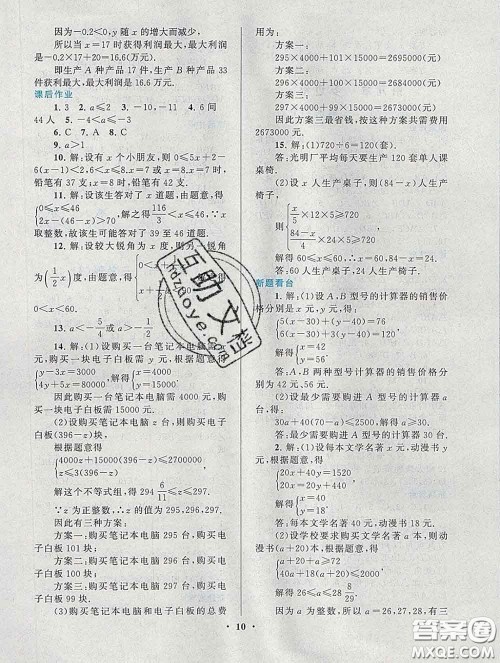 因为-0.2<0,y随x的增大而减少,
所以当x=17时获得利润最大,最大利润
是-0.2×17+20=16.6(万元).
即生产A种产品17件,生产B种产品33
件获利最大,最大利润是16.6万元.
课后作业
1. 3 2. a≤2 3. -10,-11 4. 6间
44人 5.
6. C 7. A 8. C
9. a>1
10. 解:设有x个小朋友,则0≤5x+2-
铅笔有37支;x=8时,铅笔有42支.
11. 解:设该生答对了x道题,由题意,得
{0≤x≤46
2x-(46-x)>70
解之得
<x≤46.∵x
取整数,故该生可能答对了39至46道题.
12. 解:设较大锐角为x度,则另一锐角
为(1/2 x)度,由题意,得
0<x<60.
13. a<-5/4或a>-1
14. 解:(1)设购买一台笔记本电脑需x
元,购买一块电子白板需y元,根据题意得
{y=3x+3000
4x+5y=80000
解得{x=4000
y=15000
因此购买一台笔记本电脑需4000元,购
买一块电子白板需15000元.
(2)设购买笔记本电脑z台,则购买电子
白板(396-z)块,
根据题意得
{4000z+15000(396-z)≤2700000
z≤3(396-z)
解这个不等式组,得294 6/11≤z≤297
∵z为正整数,∴z=295,296,297.
因此有三种方案:
方案一:购买笔记本电脑295台,购买电
子白板101块.
方案二:购买笔记本电脑296台,购买电
子白板100块.
方案三:购买笔记本电脑297台,购买电
子白板99块.
(3)购买笔记本电脑和电子白板的总费
用为
方案一:
295×4000+101×15000=2695000(元)
方案二:
296×4000+100×15000=2684000(元)
方案三:
297×4000+99×15000=2673000(元)
因此方案三最省钱,按这种方案共需费用
2673000元.
15. 解:(1)720÷6=120(套).
答:光明厂平均每天要生产120套单人课
桌椅.
(2)设x人生产桌子,则(84-x)人生产
椅子.
则
{x/5×12×5≥720
×24×5≥720
解得60≤x≤60,∴x=60,84-x=24.
答:60人生产桌子,24人生产椅子.
新题看台
1. 解:(1)设A、B型号的计算器的销售
价格分别是x元、y元,得
{5(x-30)+(y-40)=76
6(x-30)+3(y-40)=120
解得{x=42
y=56
答:A、B两种型号计算器的销售价格分
别为42元、56元.
(2)设最少需要购进A型号的计算器a
台,得
30a+40(70-a)≤2500,解得a≥30.
答:最少需要购进A型号的计算器30台.
2. 解:(1)设每本文学名著x元,动漫书
y元,根据题意,得
{20x+40y=1520
20x-20y=440
解得{x=40
y=18
答:每本文学名著40元,动漫书18元.
(2)设学校要求购买文学名著a本,则动
漫书(a+20)本,根据题意,得
{a+a+20≥72
40a+18(a+20)≤2000
解得26≤a≤28 8/29
因为a为整数,所以a=26,27,28,有三
·10·
互助文档
hdzuoye.com
答案圈
MXQE.COM